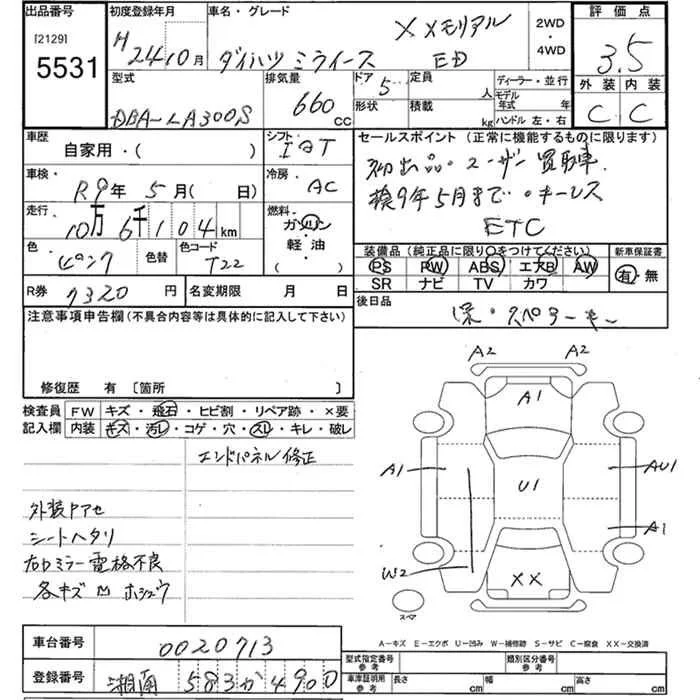 出品番号 初度登録年月 車名・グレード 評価点
[2129] 5531 H24 10月 ダイハツ ミライース Xメモリアル ED 2WD・4WD 3.5
型式 排気量 ドア 定員 ディーラー・並行 外装 内装
DBA-LA300S 660 CC 5 人 モデル年式 年 C C
形状 積載 kg ハンドル 左・右
車歴 シフト セールスポイント (正常に機能するものに限ります)
自家用・( ) IAT 初出品・ユーザー買取車
車検 R9年 5月( 日) 冷房 AC 検9年5月まで・キーレス
走行 10万6千104km 燃料 ガソリン・軽油 ETC
色 ピンク 色替 色コード T22
装備品 (純正品に限り○をつけてください) 新車保証書
PS PW ABS エアB AW 有・無
SR ナビ TV カワ
R券 7320円 名変期限 月 日 後日品
保・スペアーキー
注意事項申告欄 (不具合内容等は具体的に記入して下さい)
修復歴 有 〔箇所 〕
検査員 FW キズ・飛石・ヒビ割・リペア跡・×要
記入欄 内装 キズ・汚レ・コゲ・穴・スレ・キレ・破レ
エンドパネル修正
外装アセ
シートヘタリ
右ドミラー電格不良
各キズ凹ホシュウ
A2 A2
A1
A1 U1 AU1
A1
W2 XX
スペア
A-キズ E-エクボ U-凹み W-補修跡 S-サビ C-腐食 XX-交換済
車台番号 0020713
登録番号 湘南 583 か 4900
型式指定番号参考 類別区分番号参考
車庫証明用参考 長さ cm 幅 cm 高さ cm